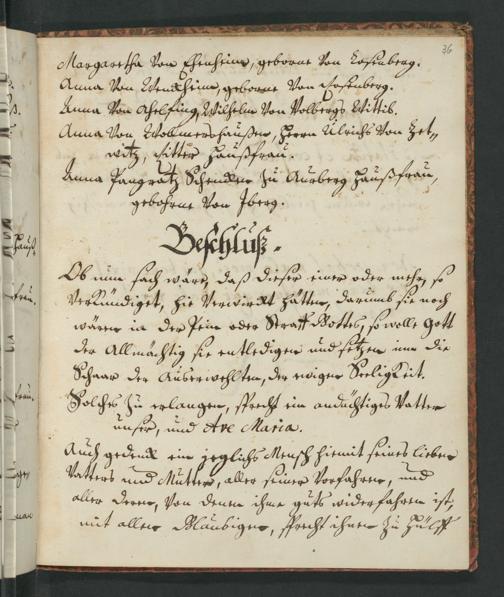 36
Margaretha von Ehenheim, geborne von Rosenberg.
Anna von Wenkheim, geborne von Rosenberg.
Anna von Ahelfing, Wilhelm von Wolbergs Wittib.
Anna von Wollmershaußen, Herrn Ulrichs von Zet„
witz, Ritter Haußfrau.
Anna Pangratz Schenken zu Aurberg Haußfrau,
gebohrne von Iberg.
Beschluß.
Ob nun sach wäre, daß dieser einer oder mehr, so
verkündiget, hie verwirckt hätten, darumb sie noch
wären in der Pein oder Straff Gottes, so wolle Gott
der Allmächtig sie entledigen und setzen inn die
Schaar der Auserwehlten, der ewigen Seeligkeit.
Solches zu erlangen, sprecht ein andächtiges Vatter
unser, und Ave Maria.
Auch gedenk ein jeglichs Mensch hiemit seines lieben
Vatters und Mutter, aller seiner Vorfahren, und
aller deren, von denen ihme guts widerfahren ist,
mit allen Gläubigen, sprecht ihnen zu Hülff